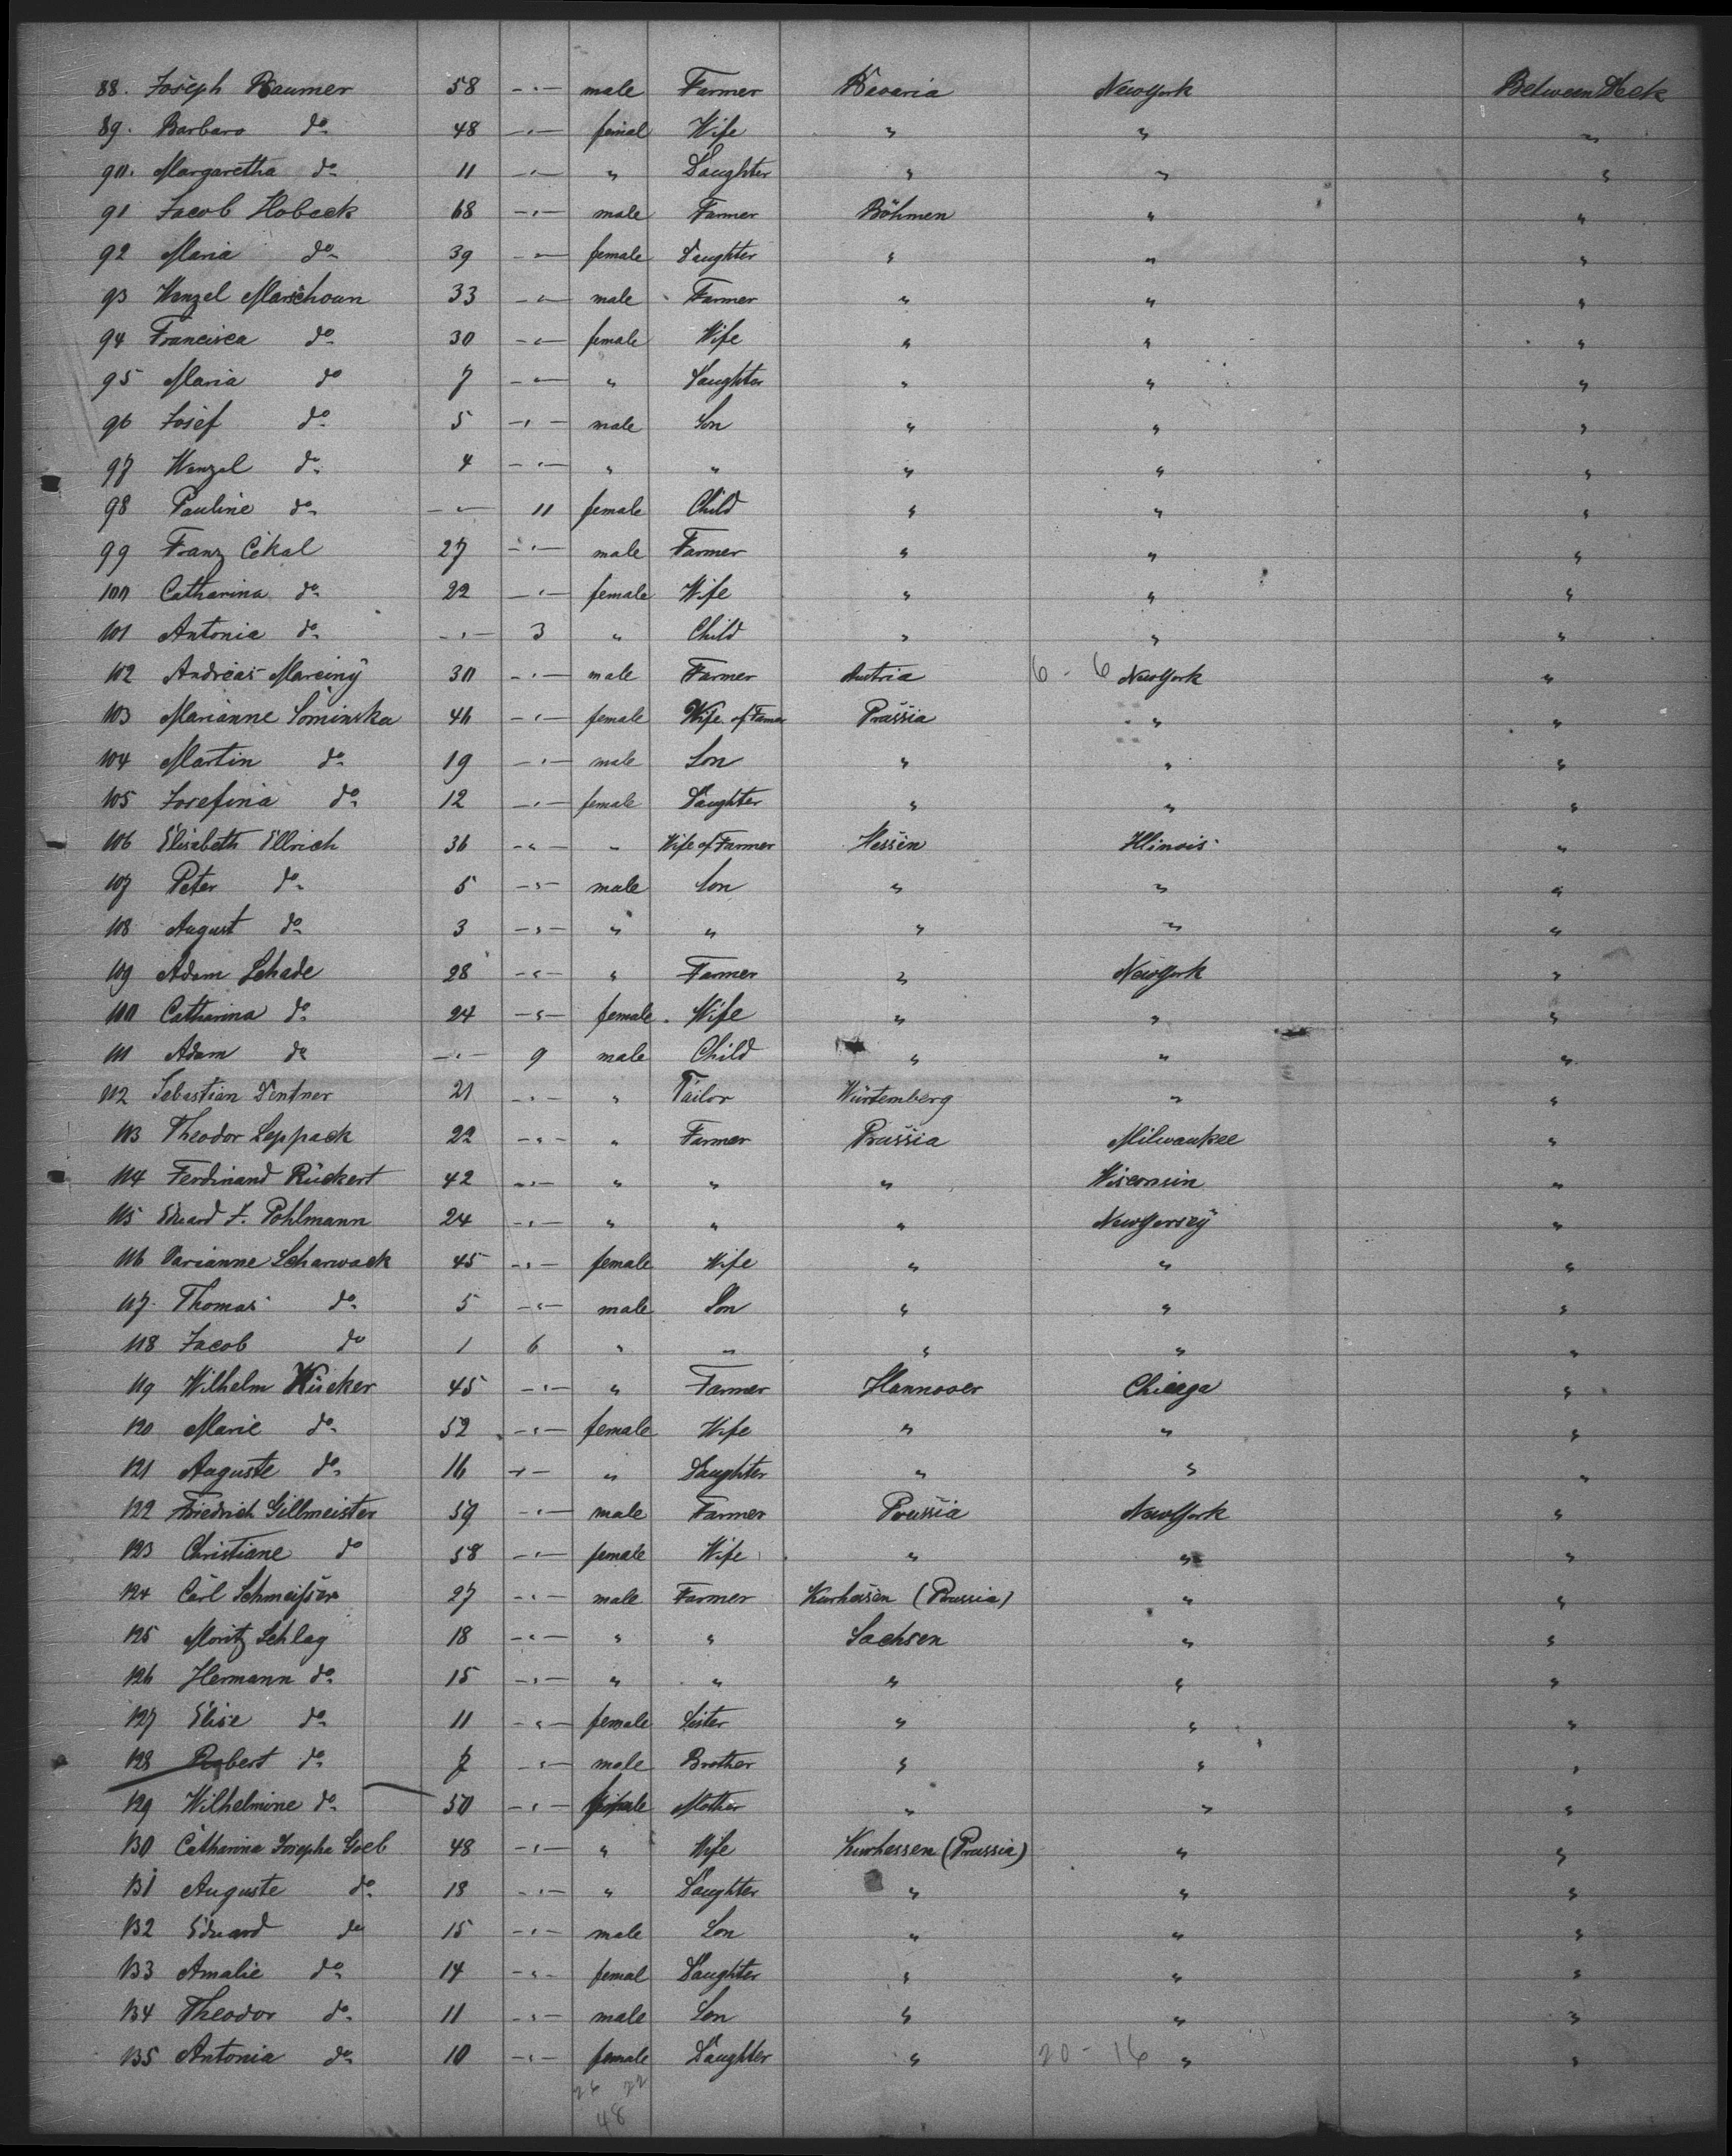 88. Joseph Baumer 58 -"- male Farmer Bevaria NewYork Between Deck
89. Barbara do 48 -"- femal Wife " " "
90. Margaretha do 11 -"- " Daughter " " "
91 Jacob Hobeck 68 -"- male Farmer Böhmen " "
92 Maria do 39 -"- female Daughter " " "
93 Wenzel Marschoun 33 -"- male Farmer " " "
94 Francisca do 30 -"- female Wife " " "
95 Maria do 7 -"- " Daughter " " "
96 Josef do 5 -"- male Son " " "
97 Wenzel do 4 -"- " " " " "
98 Pauline do -"- 11 female Child " " "
99 Franz Cekal 27 -"- male Farmer " " "
100 Catharina do 22 -"- female Wife " " "
101 Antonia do -"- 3 " Child " " "
102 Andreas Marciny 30 -"- male Farmer Austria 6 - 6 NewYork "
103 Marianne Sominska 46 -"- female Wife of Farmer Prussia " "
104 Martin do 19 -"- male Son " " "
105 Josefina do 12 -"- female Daughter " " "
106 Elisabeth Ellrich 36 -"- " Wife of Farmer Hessen Illinois "
107 Peter do 5 -"- male Son " " "
108 August do 3 -"- " " " " "
109 Adam Schade 28 -"- " Farmer " NewYork "
110 Catharina do 24 -"- female Wife " " "
111 Adam do -"- 9 male Child " " "
112 Sebastian Dentner 21 -"- " Tailor Würtemberg " "
113 Theodor Leppack 22 -"- " Farmer Prussia Milwaukee "
114 Ferdinand Rückert 42 -"- " " " Wisconsin "
115 Eduard F. Pohlmann 24 -"- " " " NewJersey "
116 Marianne Scharwack 45 -"- female Wife " " "
117. Thomas do 5 -"- male Son " " "
118 Jacob do 1 6 " " " " "
119 Wilhelm Kücker 45 -"- " Farmer Hannover Chicaga "
120 Marie do 52 -"- female Wife " " "
121 Auguste do 16 -"- " Daughter " " "
122 Friedrich Gillmeister 59 -"- male Farmer Prussia NewYork "
123 Christiane do 58 -"- female Wife " " "
124 Carl Schmeißer 27 -"- male Farmer Kurhessen (Prussia) " "
125 Moritz Schlag 18 -"- " " Sachsen " "
126 Hermann do 15 -"- " " " " "
127 Elise do 11 -"- female Sister " " "
128 Robert do 7 -"- male Brother " " "
129 Wilhelmine do 50 -"- female Mother " " "
130 Catharina Josepha Goeb 48 -"- " Wife Kurhessen (Prussia) " "
131 Auguste do 18 -"- " Daughter " " "
132 Eduard do 15 -"- male Son " " "
133 Amalie do 14 -"- femal Daughter " " "
134 Theodor do 11 -"- male Son " " "
135 Antonia do 10 -"- female Daughter " 20 - 16 " "
26 22
48